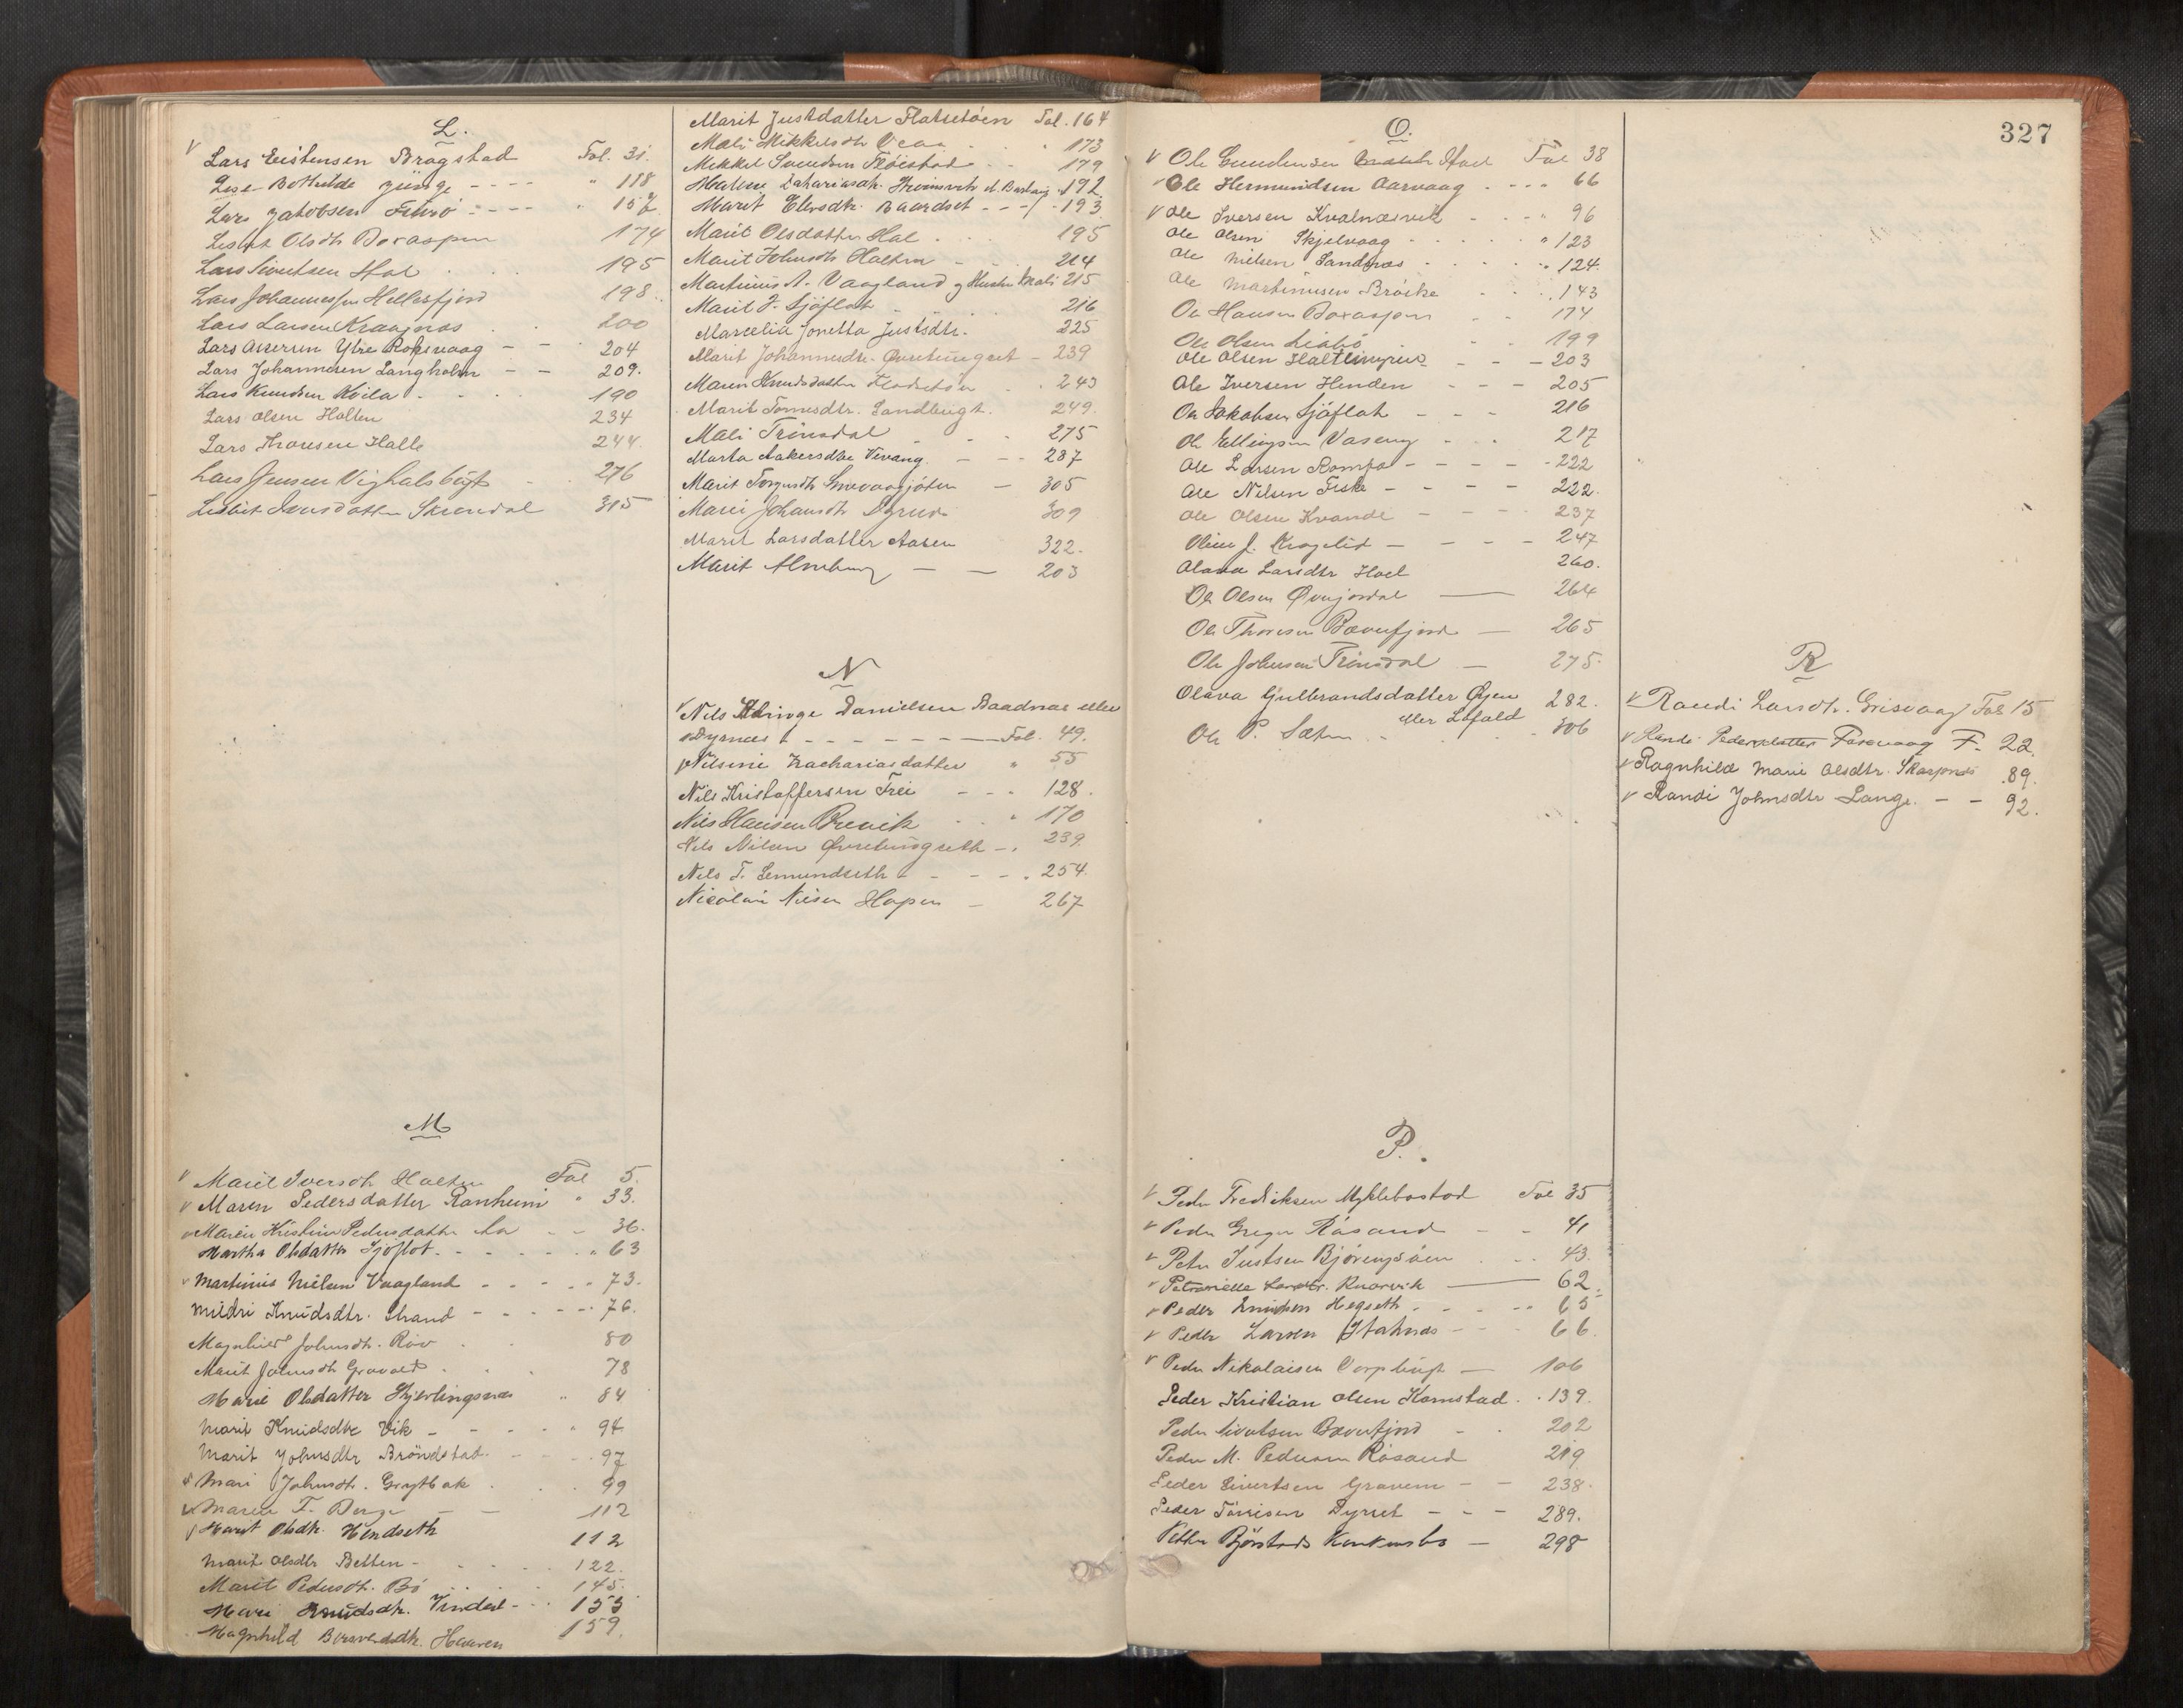 L.
v Lars Eistensen Bragstad Fol. 31.
Lise Bothilde Jünge - - - - " 118
Lars Jakobsen Furrö - - - - " 157
Lisbet Olsdtr Boraspen 174
Lars Sivertsen Hal 195
Lars Johannessen Hellesfjord 198
Lars Larsen Kraagnæs 200
Lars Assersen Ytre Roksvaag - - 204
Lars Johannesen Langholm - - 209.
Lars Knudsen Kvila 190
Lars Olsen Holten 234
Lars Thoresen Halle 244.
Lars Jensen Vighalsbugt 276
Lisbet Jensdatter Skrondal 315
M
v Marit Iversdtr Halten Fol 5.
v Maren Pedersdatter Ranheim " 33.
v Maren Kristine Pedersdatter - - 36.
Martha Olsdatter Sjøflot - - - " 63
v Martinus Nielsen Vaagland - - - 73.
Mildri Knudsdtr. Strand - - - - 76.
Magnhild Johnsdtr. Röv 80
Marit Johnsdtr Gravald 78
Marie Olsdatter Hjerlingsnæs " 84
Marit Knudsdtr Vik - - - " 94
Marit Johnsdtr Bröndstad - - 97
v Mari Johnsdtr. Grytbak 99
v Maren F. Berge - - 112
v Marit Olsdtr. Hendseth 112
Marit Olsdtr Betten - 122.
Marit Pedersdtr. Bö 145.
Mari Knudsdtr. Vindal - - 155
Magnhild Haaven 159.
Marit Justsdatter Flatsetöen Fol. 164
Mali Mikkelsdtr 173
Mikkel Sivertsen Röistad - - 179
Malene Zakariasdtr. 192
Marit Elensdtr. Baardset - - 193
Marit Olsdatter Hal 195
Marit Johnsdtr Halten 214
Martinus A. Vaagland og Hustru Mali 215
Marit J. Sjöflot 216
Marcelia Jonetta Justsdtr. 225
Marit Johannesdtr. - 239
Maren Knudsdatter Flatsetöen 243
Marit Tomesdtr. Sandbugt. 249.
Mali Trönsdal - - - 275
Marta Aakersdtr Vevang. - - - 287
Marit Torgersdtr - 305
Marie Johansdtr 309
Marit Larsdatter Aasen 322.
Marit Almberg - - 203
N
v Nils Danielsen Baadnæs eller
Dyrnæs - - - - - - Fol. 49.
v Nilsine Zachariasdatter " 55
Nils Kristoffersen Frei - - - 128.
Nils Hansen Brevik - - " 170
Nils Nilsen - . 239.
Nils T. Semundseth - - - - 254.
Nicolai Nilsen Hopen - 267
327
O.
v Ole Gundersen Hoel Fol 38
v Ole Hermundsen Aarvaag - - - 66
v Ole Iversen Kvalnæsvik - - - " 96
Ole Olsen Skjelvaag - - - - " 123
Ole Nielsen Sandnæs - - - - " 124.
Ole Martinusen Bröske - - - 143
Ole Hansen Boraspen - - 174
Ole Olsen Liabö - - 199
Ole Olsen - - - 203
Ole Iversen Henden - - - 205
Ole Jakobsen Sjöflot - - - 216
Ole Ellingsen Vaseng - - - 217
Ole Larsen Rompa - - - - 222
Ole Nilsen Fiske - - - - 222.
Ole Olsen Kvande - - - 237
Oline J. Kragelid - - - - 247
Olava Larsdtr Hoel 260.
Ole Olsen Øverjordal - 264
Ole Thoresen Bæverfjord - 265
Ole Johnsen Trönsdal - 275.
Olava Gulbrandsdatter Øyen 282.
eller Löfald
Ole P. Sæter 306
P.
v Peder Fredriksen Myklebostad Fol 35
v Peder Greger Råsand - - 41
v Peter Justsen 43
v Petronelle Larsdtr. Knarvik - 62.
v Peder Knudsen Hegseth - - - 65
v Peder Larsen Stahnæs - - 66.
v Peder Nikolaisen Vorpbugt - 106
Peder Kristian Olsen Kornstad . 139.
Peder Sivertsen Bæverfjord 202
Peder M. Pedersen Råsand 219
Peder Sivertsen Gravem - - 238.
Peder Tönnisen Dyrset - - - 289.
Petter Björstads Konkursbo - 298
R
v Randi Larsdtr. Grisvaag Fol 15
v Randi Pedersdatter F. 22.
v Ragnhild Marie Olsdtr. 89.
v Randi Johnsdtr Lange. - - 92.